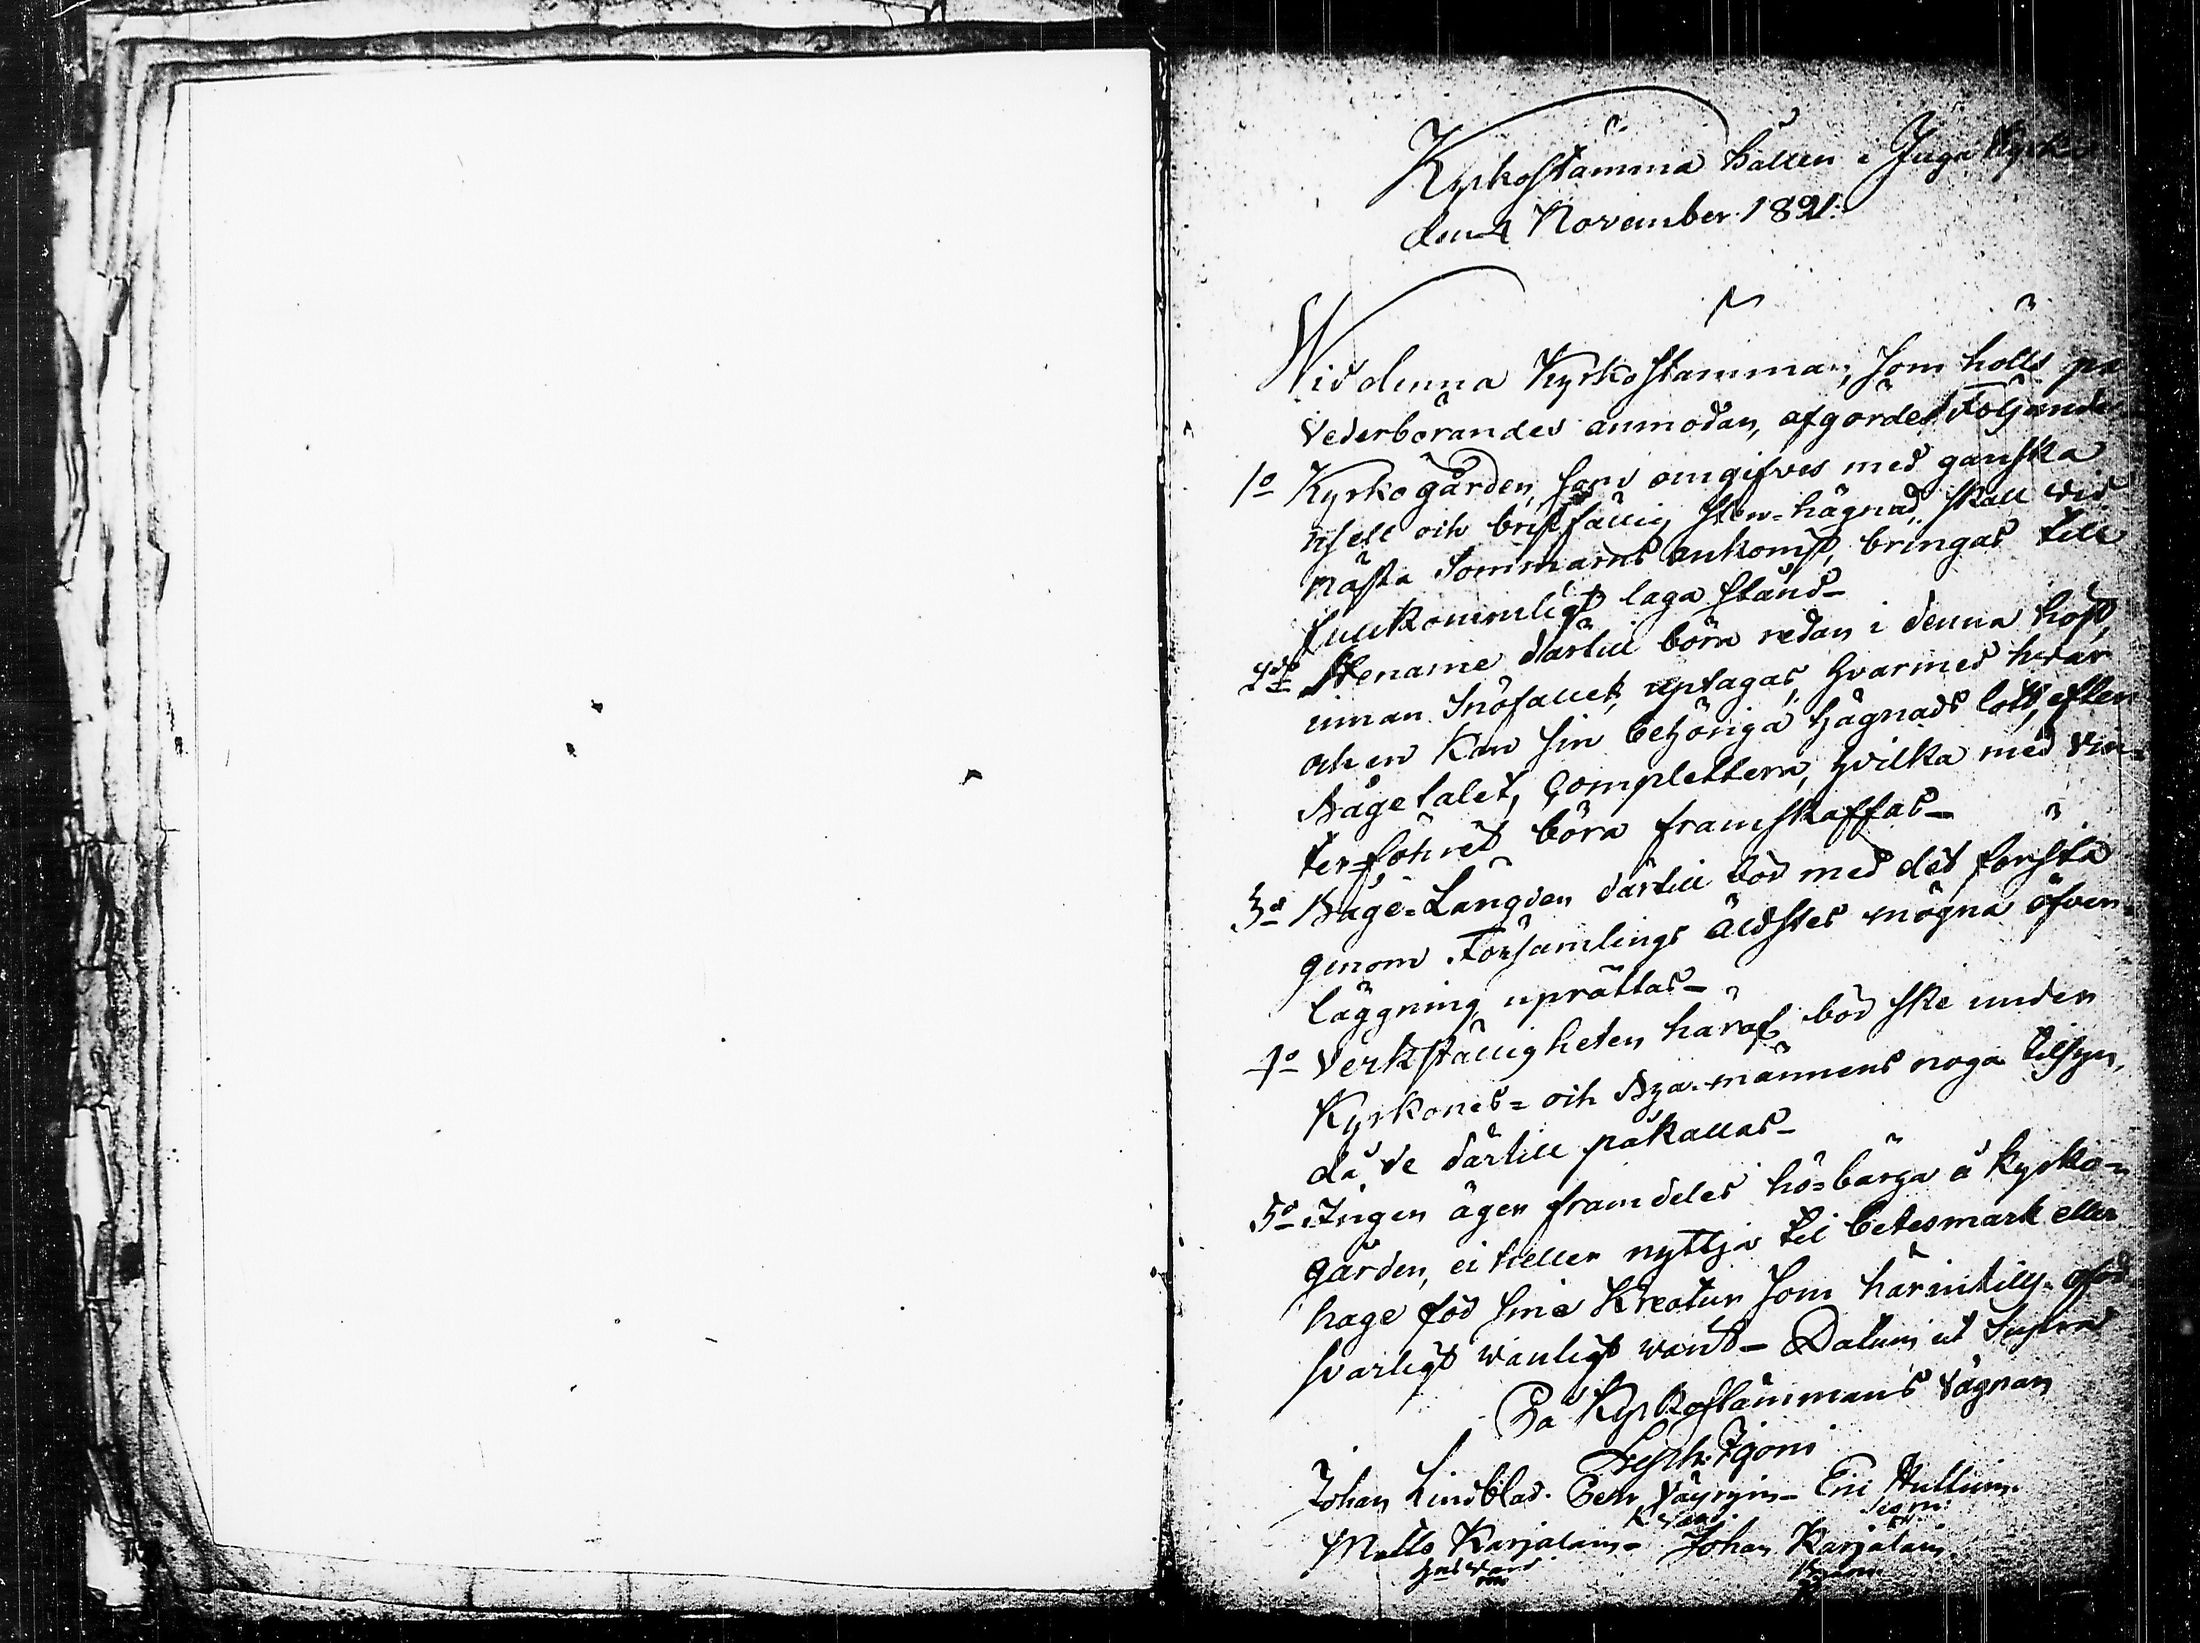 Kyrkostämma hållen i Juga Kyrka
den 4 November 1821.
Wid denna Kyrkostämma, som hölls på
Vederbörandes anmodan, afgördes Följande
1o Kyrkogården, som omgifves med ganska
usell och bristfällig Sten-hägnad, skall vid
nästa Sommarns ankomst, bringas till
fullkommligt laga stånd_
2do Stenarne därtill böra redan i denna höst,
innan Snöfallet, uptagas, hvarmed hvar
och en kan sin behöriga hägnads lott, efter
Bågetalet, complettera, hvilka med vin-
ter-föhret böra framskaffas_
3o Båge-Längden därtill bör med det första
genom Församlings Äldstes mogna öfver-
läggning uprättas_
4o Verkställigheten häraf bör ske under
Kyrkones- och Bya-männens noga tilsyn,
då de därtill påkallas_
5o Ingen äger framdeles hö-bärga å kyrko-
gården, ei heller nyttja til betesmark eller
hage för sine Kreatur som härintills oför-
svarligt vanligt varit_ Datum ut Supra
På Kyrkostämmans vägnar
Johan Lindblad. Petr Väyryin_ Eric Hultuin.
K. värd
Matts Karjalain_ Johan Karjalain.